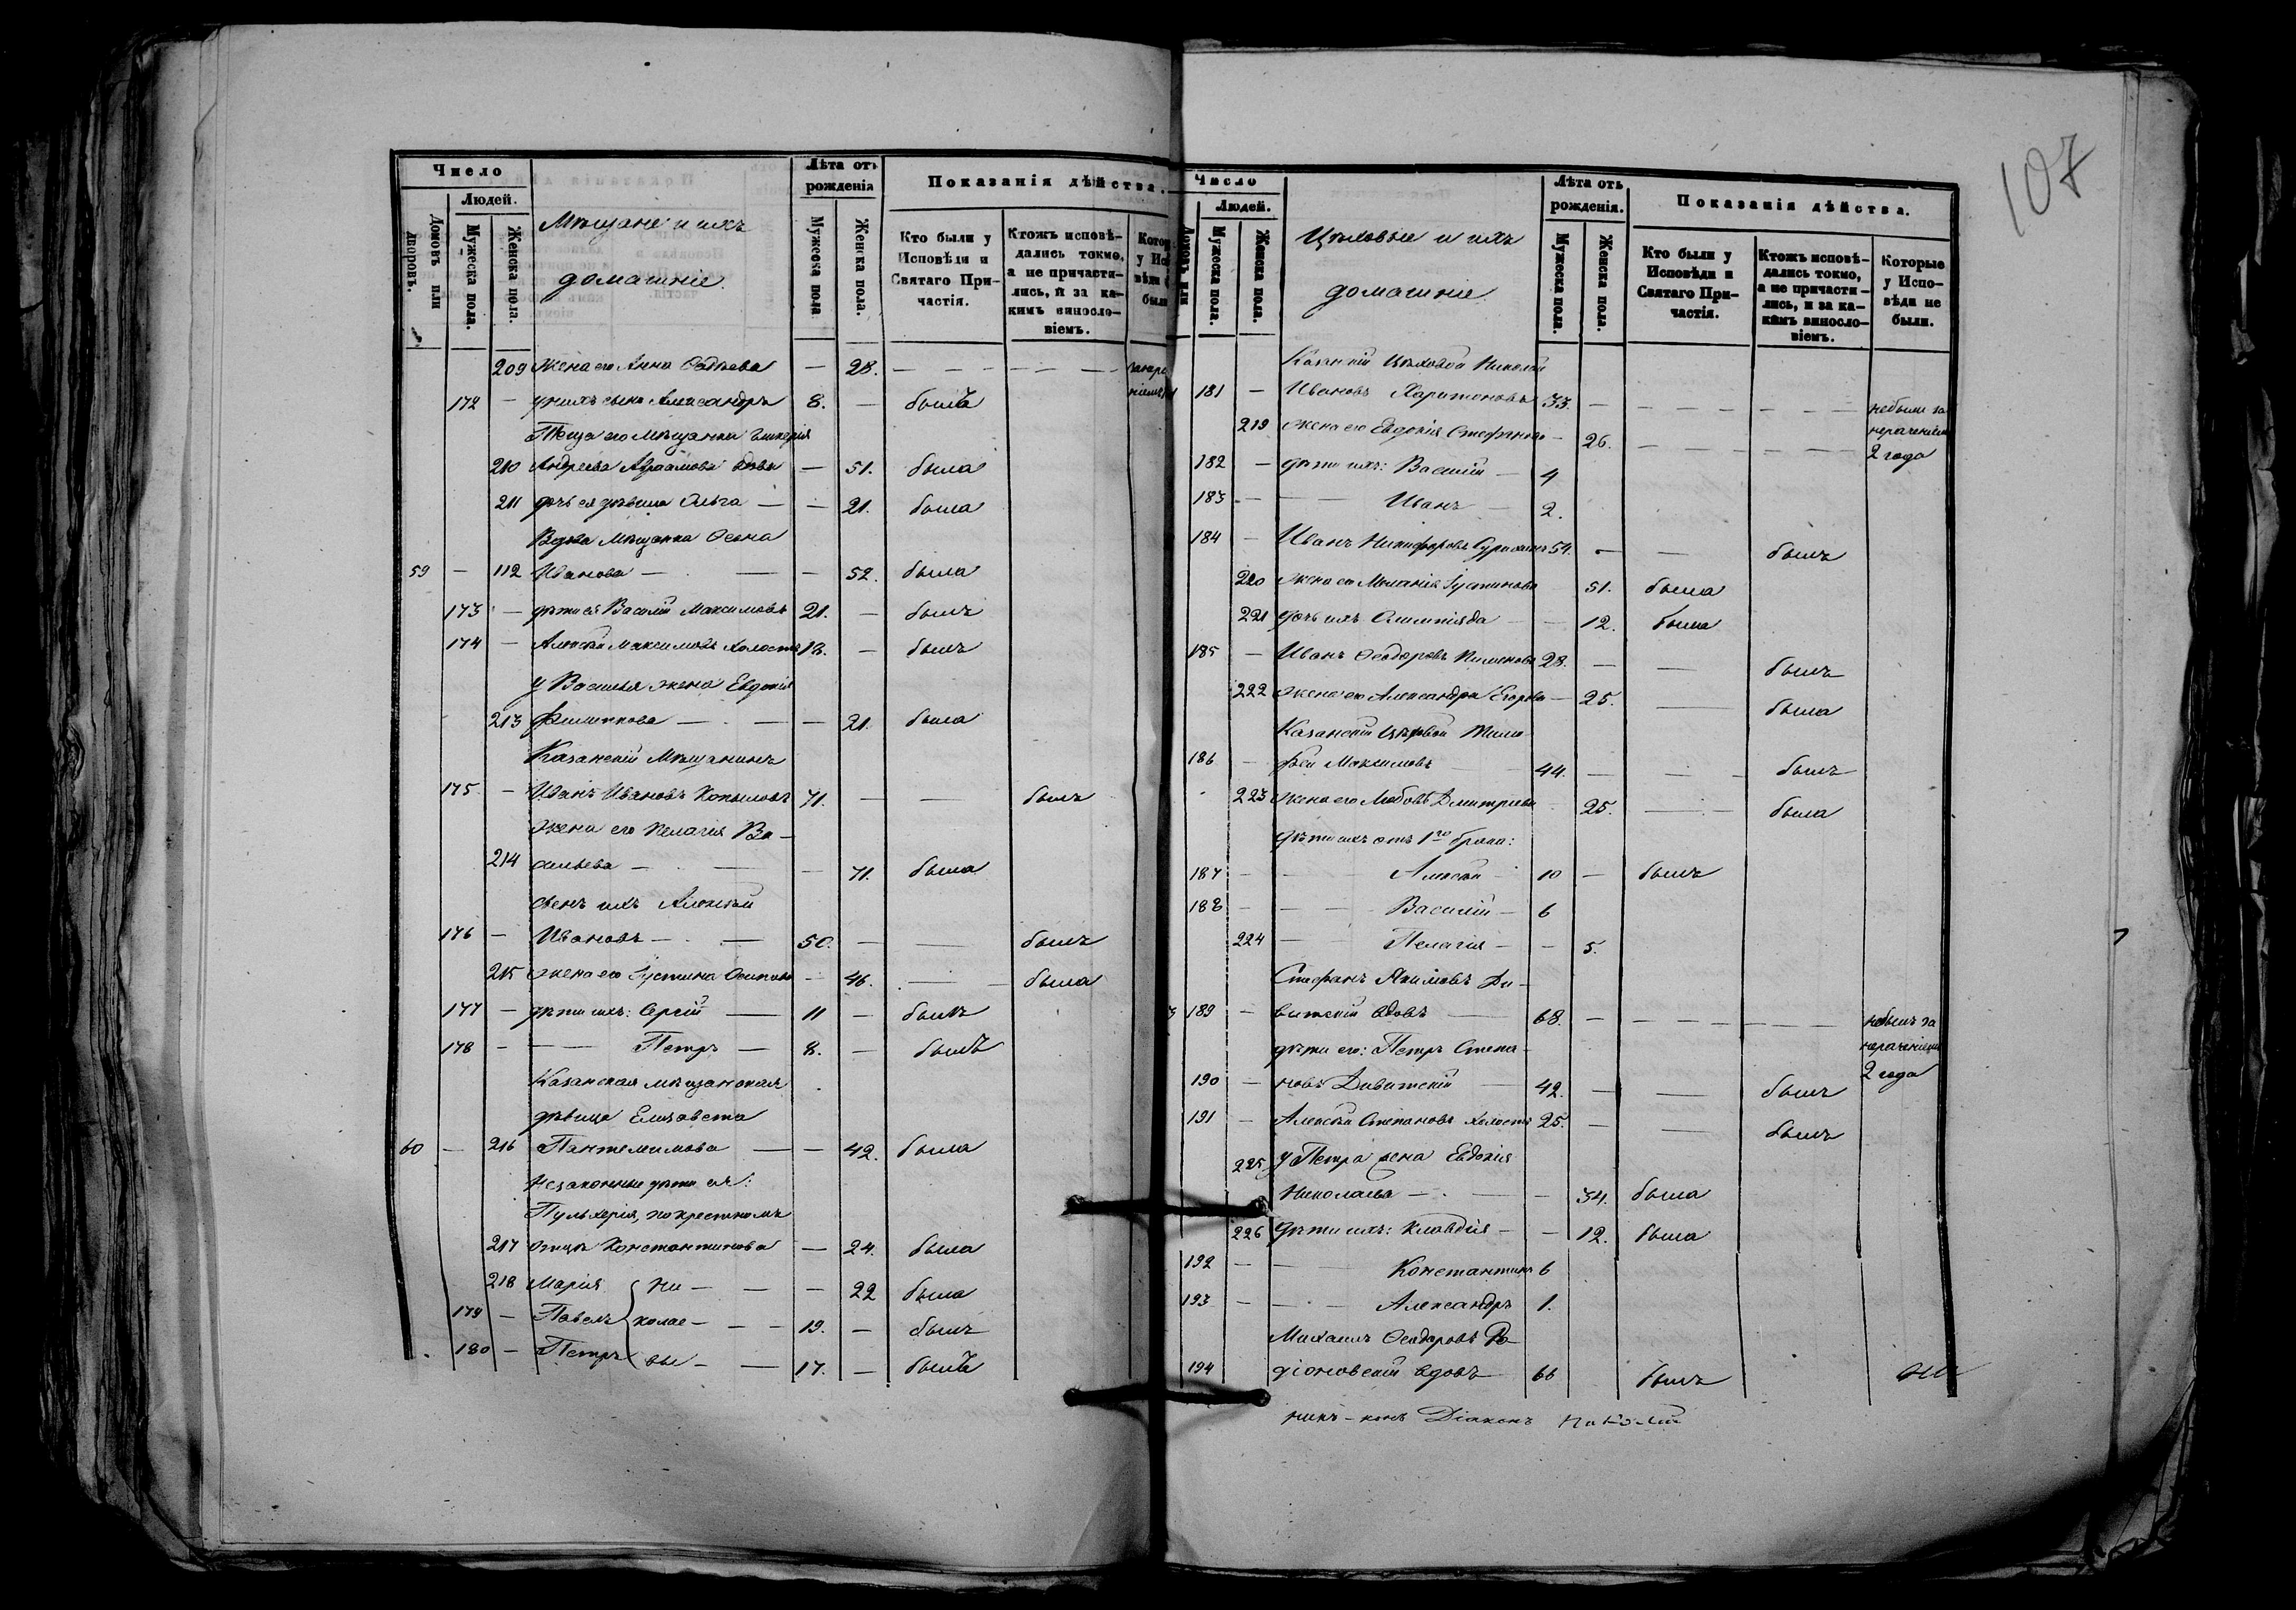 107
Число
Людей.
Домовъ или дворовъ.
Мужеска пола.
Женска пола.
Мѣщане и ихъ
домашніе.
Лѣта отъ рожденія
Мужеска пола
Женска пола.
Показанія дѣйства.
Кто были у Исповѣди и Святаго Причастія.
Ктожъ исповѣдались токмо, а не причастились, и за какимъ винословіемъ.
209 жена его Анна — 28. — — — — —
172 — у нихъ сынъ Александръ 8. — былъ
Теща его мѣщанка
210 Андреева вдова — 51. была
211 дочь ея дѣвица Ольга — — 21. была
Вдова Мѣщанка
59 — 112 Иванова — — — 52. была
173 — дѣти ея Василій Максимовъ 21. — былъ
174 — Алексѣй Максимовъ холостъ 18. — былъ
у Василья жена Евдокія
213 Филиппова — — — 21. была
Казанскій Мѣщанинъ
175. — Иванъ Ивановъ Копыловъ 71. — — былъ
жена его Пелагія Ва-
214 сильева — — — 71. была
сынъ ихъ Алексѣй
176 — Ивановъ — — 50. — — былъ
215 жена его Іустина Осипова — 46. — — была
177 — дѣти ихъ: Сергій — 11 — былъ
178 — — Петръ — 8. — былъ
Казанская мѣщанская
дѣвица Елизавета
60 — 216 Пантелимова — — 42. была
Незаконные дѣти ея:
Пульхерія, по крестному
217 отцу Константинова — 24. была
218 Марія Ни- — — 22 была
179 — Павелъ колае- — — 19. — былъ
180 — Петръ вы — — 17. — былъ
Число
Людей.
Домовъ или
Мужеска пола.
Женска пола.
Цѣховые и ихъ
домашніе.
Лѣта отъ рожденія.
Мужеска пола.
Женска пола.
Показанія дѣйства.
Кто были у Исповѣди и Святаго Причастія.
Ктожъ исповѣдались токмо, а не причастились, и за какимъ винословіемъ.
Которые у Исповѣди не были.
Казанскій Цѣховой Николай
181 — Ивановъ Харитоновъ 33. — — — — — — — не были за
219 жена его Евдокія Стефанова — 26. — — — — нераченіемъ
182 — дѣти ихъ: Василій — 4 2 года
183 — — — Иванъ — 2.
184 — Иванъ Никифоровъ 54. — — былъ
220 жена его Меланія Іустинова 51. была
221 дочь ихъ Олимпіада — — 12. была
185 — Иванъ Ѳеодоровъ Пименовъ 28. — — былъ
222 жена его Александра Егорова — 25. — была
Казанскій Цѣховой Тимо-
186 — фей Максимовъ — 44. — — былъ
223 жена его Любовь Дмитріева 25. — была
дѣти ихъ отъ 1го брака:
187 — — Алексѣй — 10 — былъ
188 — — — Василій — 6
224 — Пелагія — — 5.
Стефанъ Якимовъ Ди-
189 — витскій вдовъ — 68. — — — — — — — не былъ за
дѣти его: Петръ Степа- нераченіемъ
190 — новъ Дивитскій — 42. — — былъ 2 года
191 — Алексѣй Степановъ холостъ 25. — — былъ
225 у Петра жена Евдокія
Николаева — — — 34. была
226 дѣти ихъ: Клавдія — — 12. была
192 — — Константинъ 6
193 — — — Александръ 1.
Михаилъ Ѳеодоровъ Ро-
194 діоновскій вдовъ 66 былъ
Діаконъ Николай